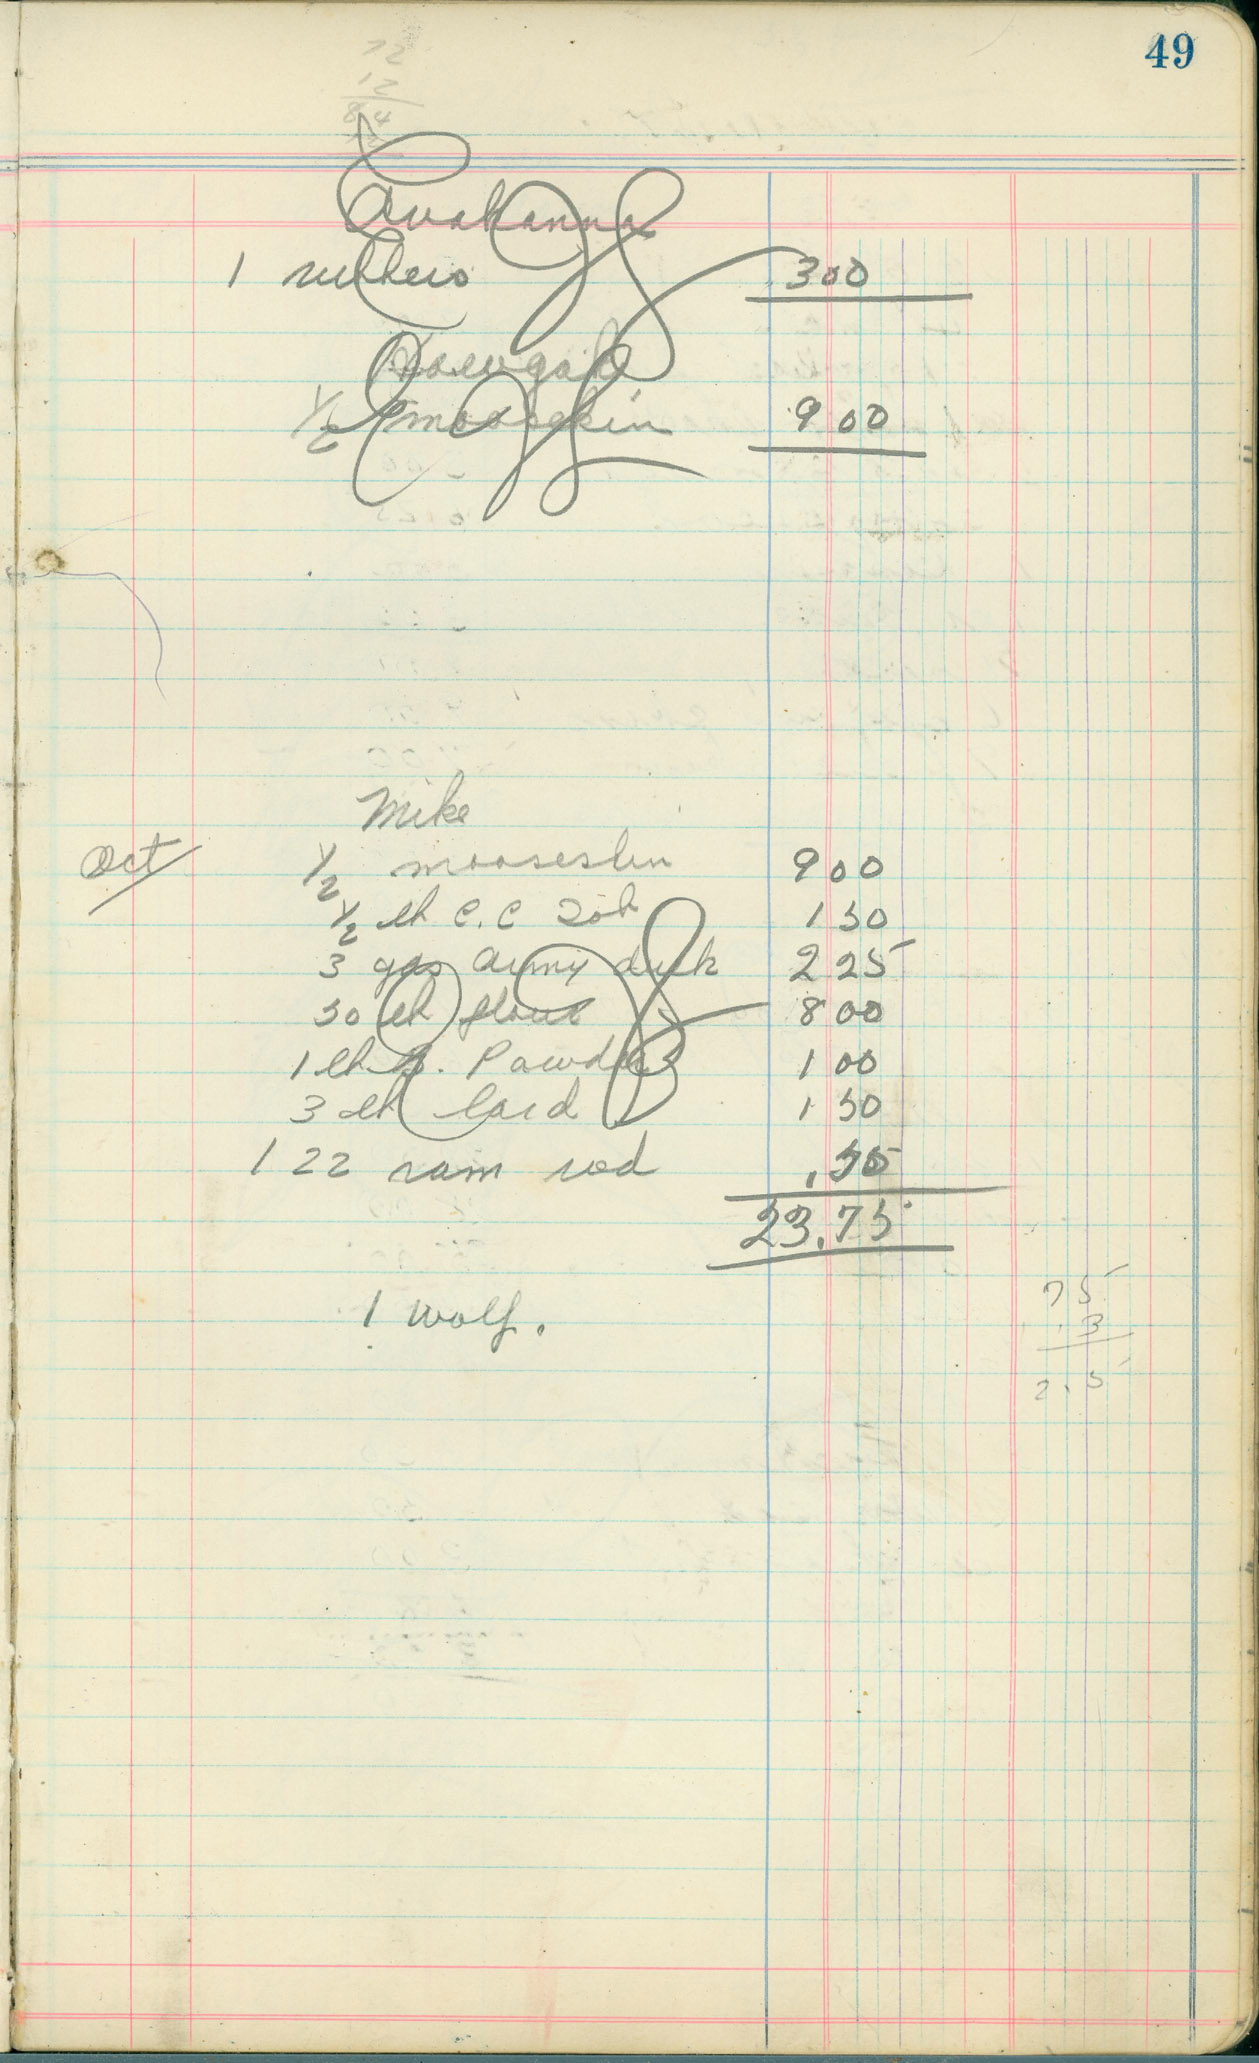 49
72
12
84
Avakanna
1 rubbers 300
1/2 mooseskin 900
Mike
Oct 1/2 mooseskin 900
1/2 lb C.C Tob 150
3 yds army duck 225
50 lb flour 800
1 lb B. Powder 100
3 lb lard 150
1 22 ram rod .50
23.75
75
3
2.5
1 wolf.